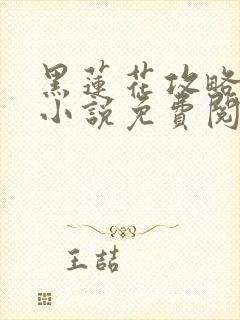 黑蓮花攻略
小說免費閱
王喆